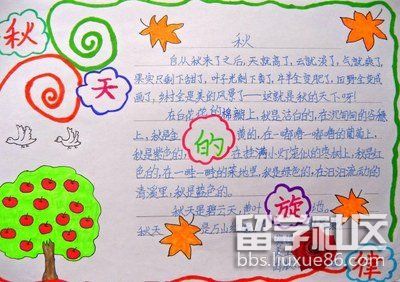 秋
天
的
旋
律
秋
自从秋来了之后,天就高了,云就淡了,气就爽了
果实只剩下甜了,叶子光剩下黄了,牛羊全变肥了,田野全变成
画了,乡村全是美的风景了——这就是秋的天下呀!
在白花花的棉糊上,秋是洁白的,在沉甸甸的谷穗
上,秋是金黄的,在一嘟噜一嘟噜的葡萄上,
秋是紫色的,在挂满小灯笼似的枣树上,秋是红
色的,在一畦一畦的菜地里,秋是绿色的,在汩汩流动的
清溪里,秋是蓝色的。
秋天是碧云天,黄叶地
秋天是万山
留学社区
bbs.liuxue86.com